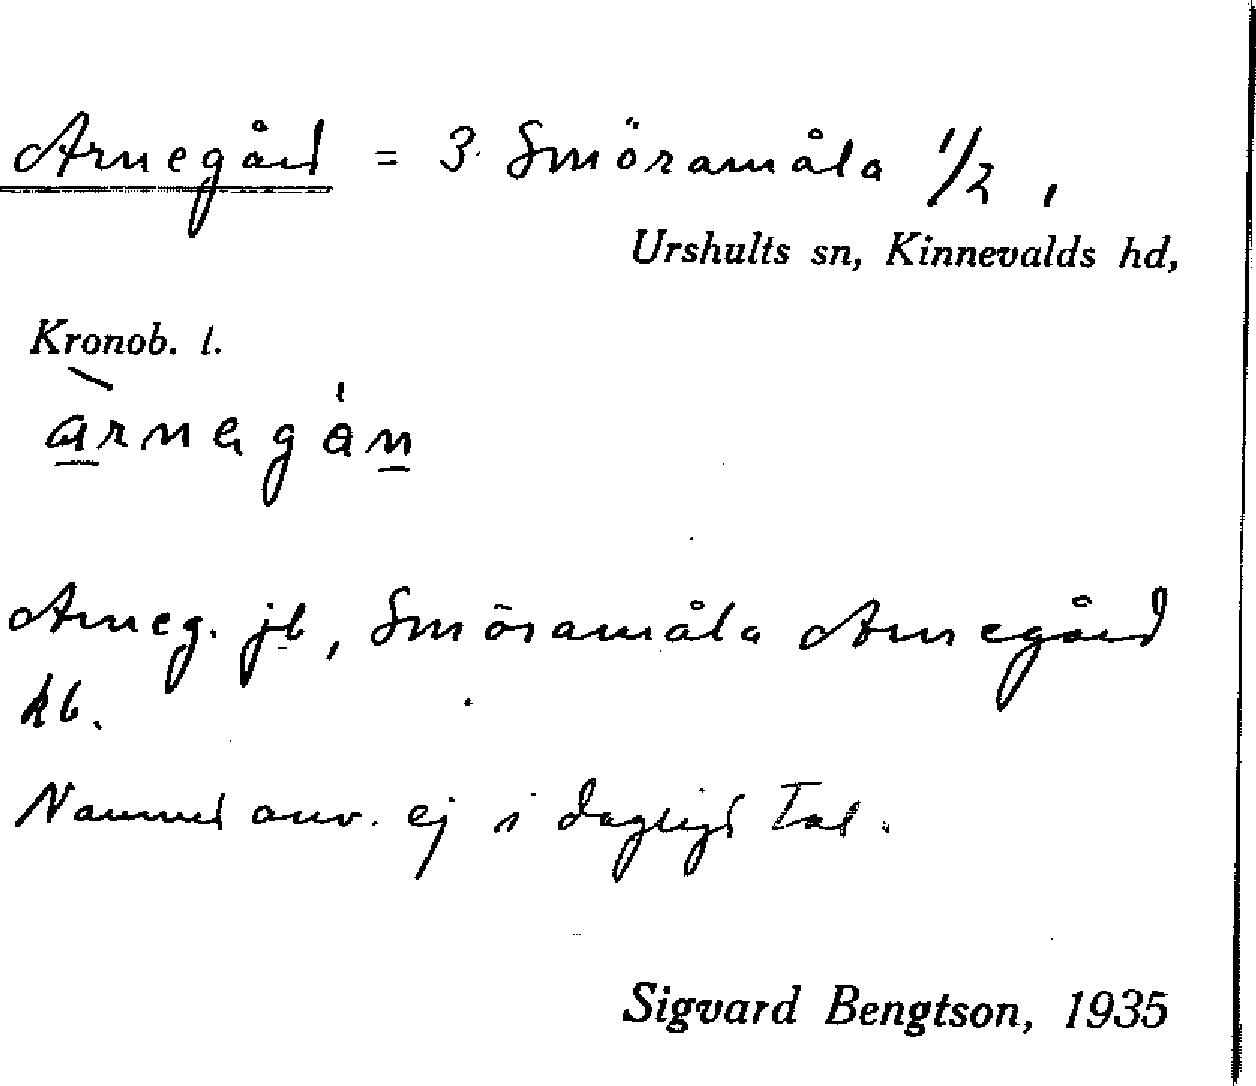 Arnegård = 3 Smöramåla 1/2,
Urshults sn, Kinnevalds hd,
Kronob. l.
àrnegån
Arneg. jb, Smöramåla Arnegård
kb.
Namnet anv. ej i dagligt tal.
Sigvard Bengtson, 1935